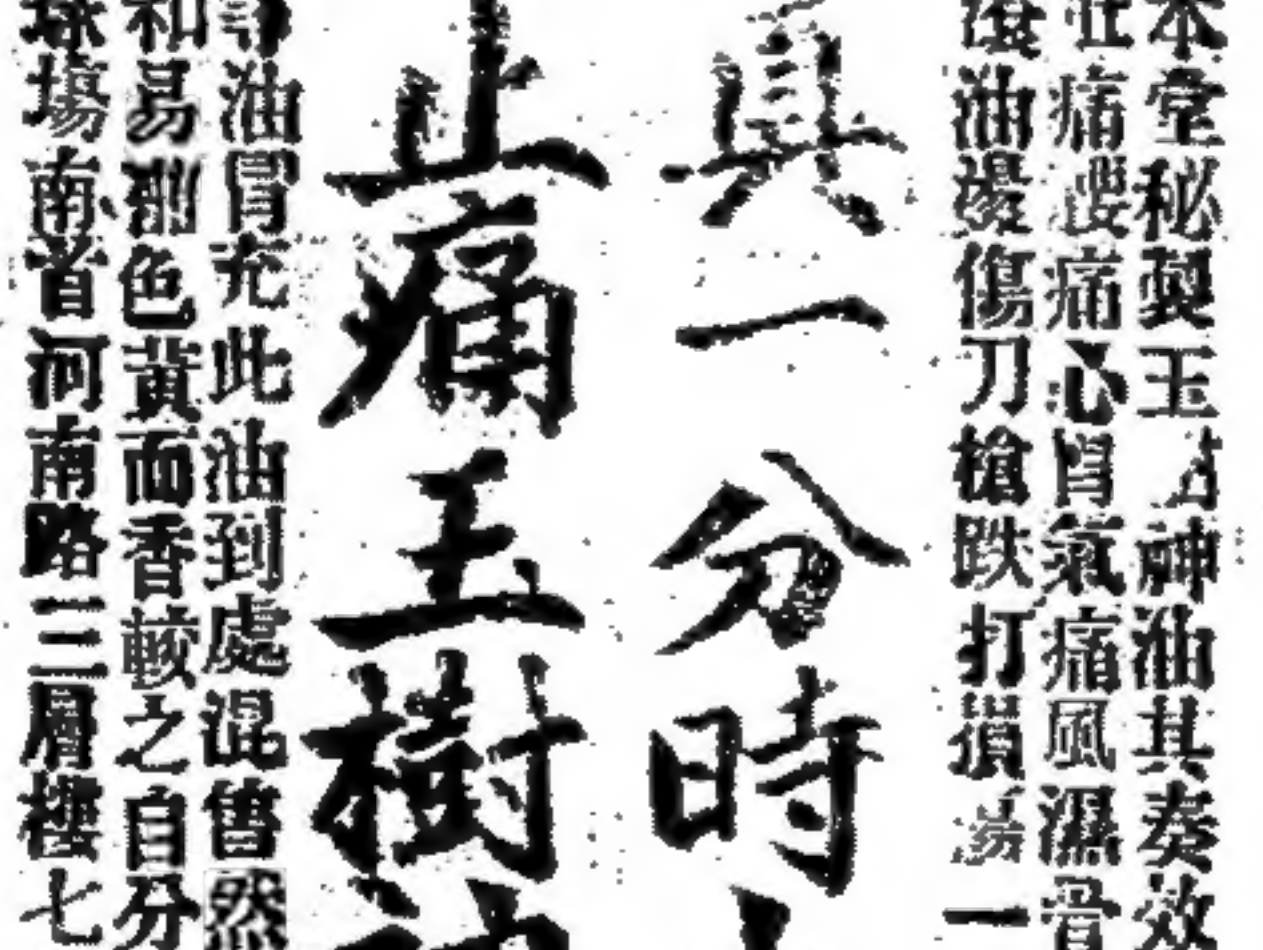 本堂秘製玉樹神油其奏效
痛腰痛心胃氣痛風濕骨
油湯傷刀槍跌打損傷一
真一分時
止痛玉樹神
油冒充此油到處混售然
和易辨色黃而香較之自分
球場南首河南路三層樓七